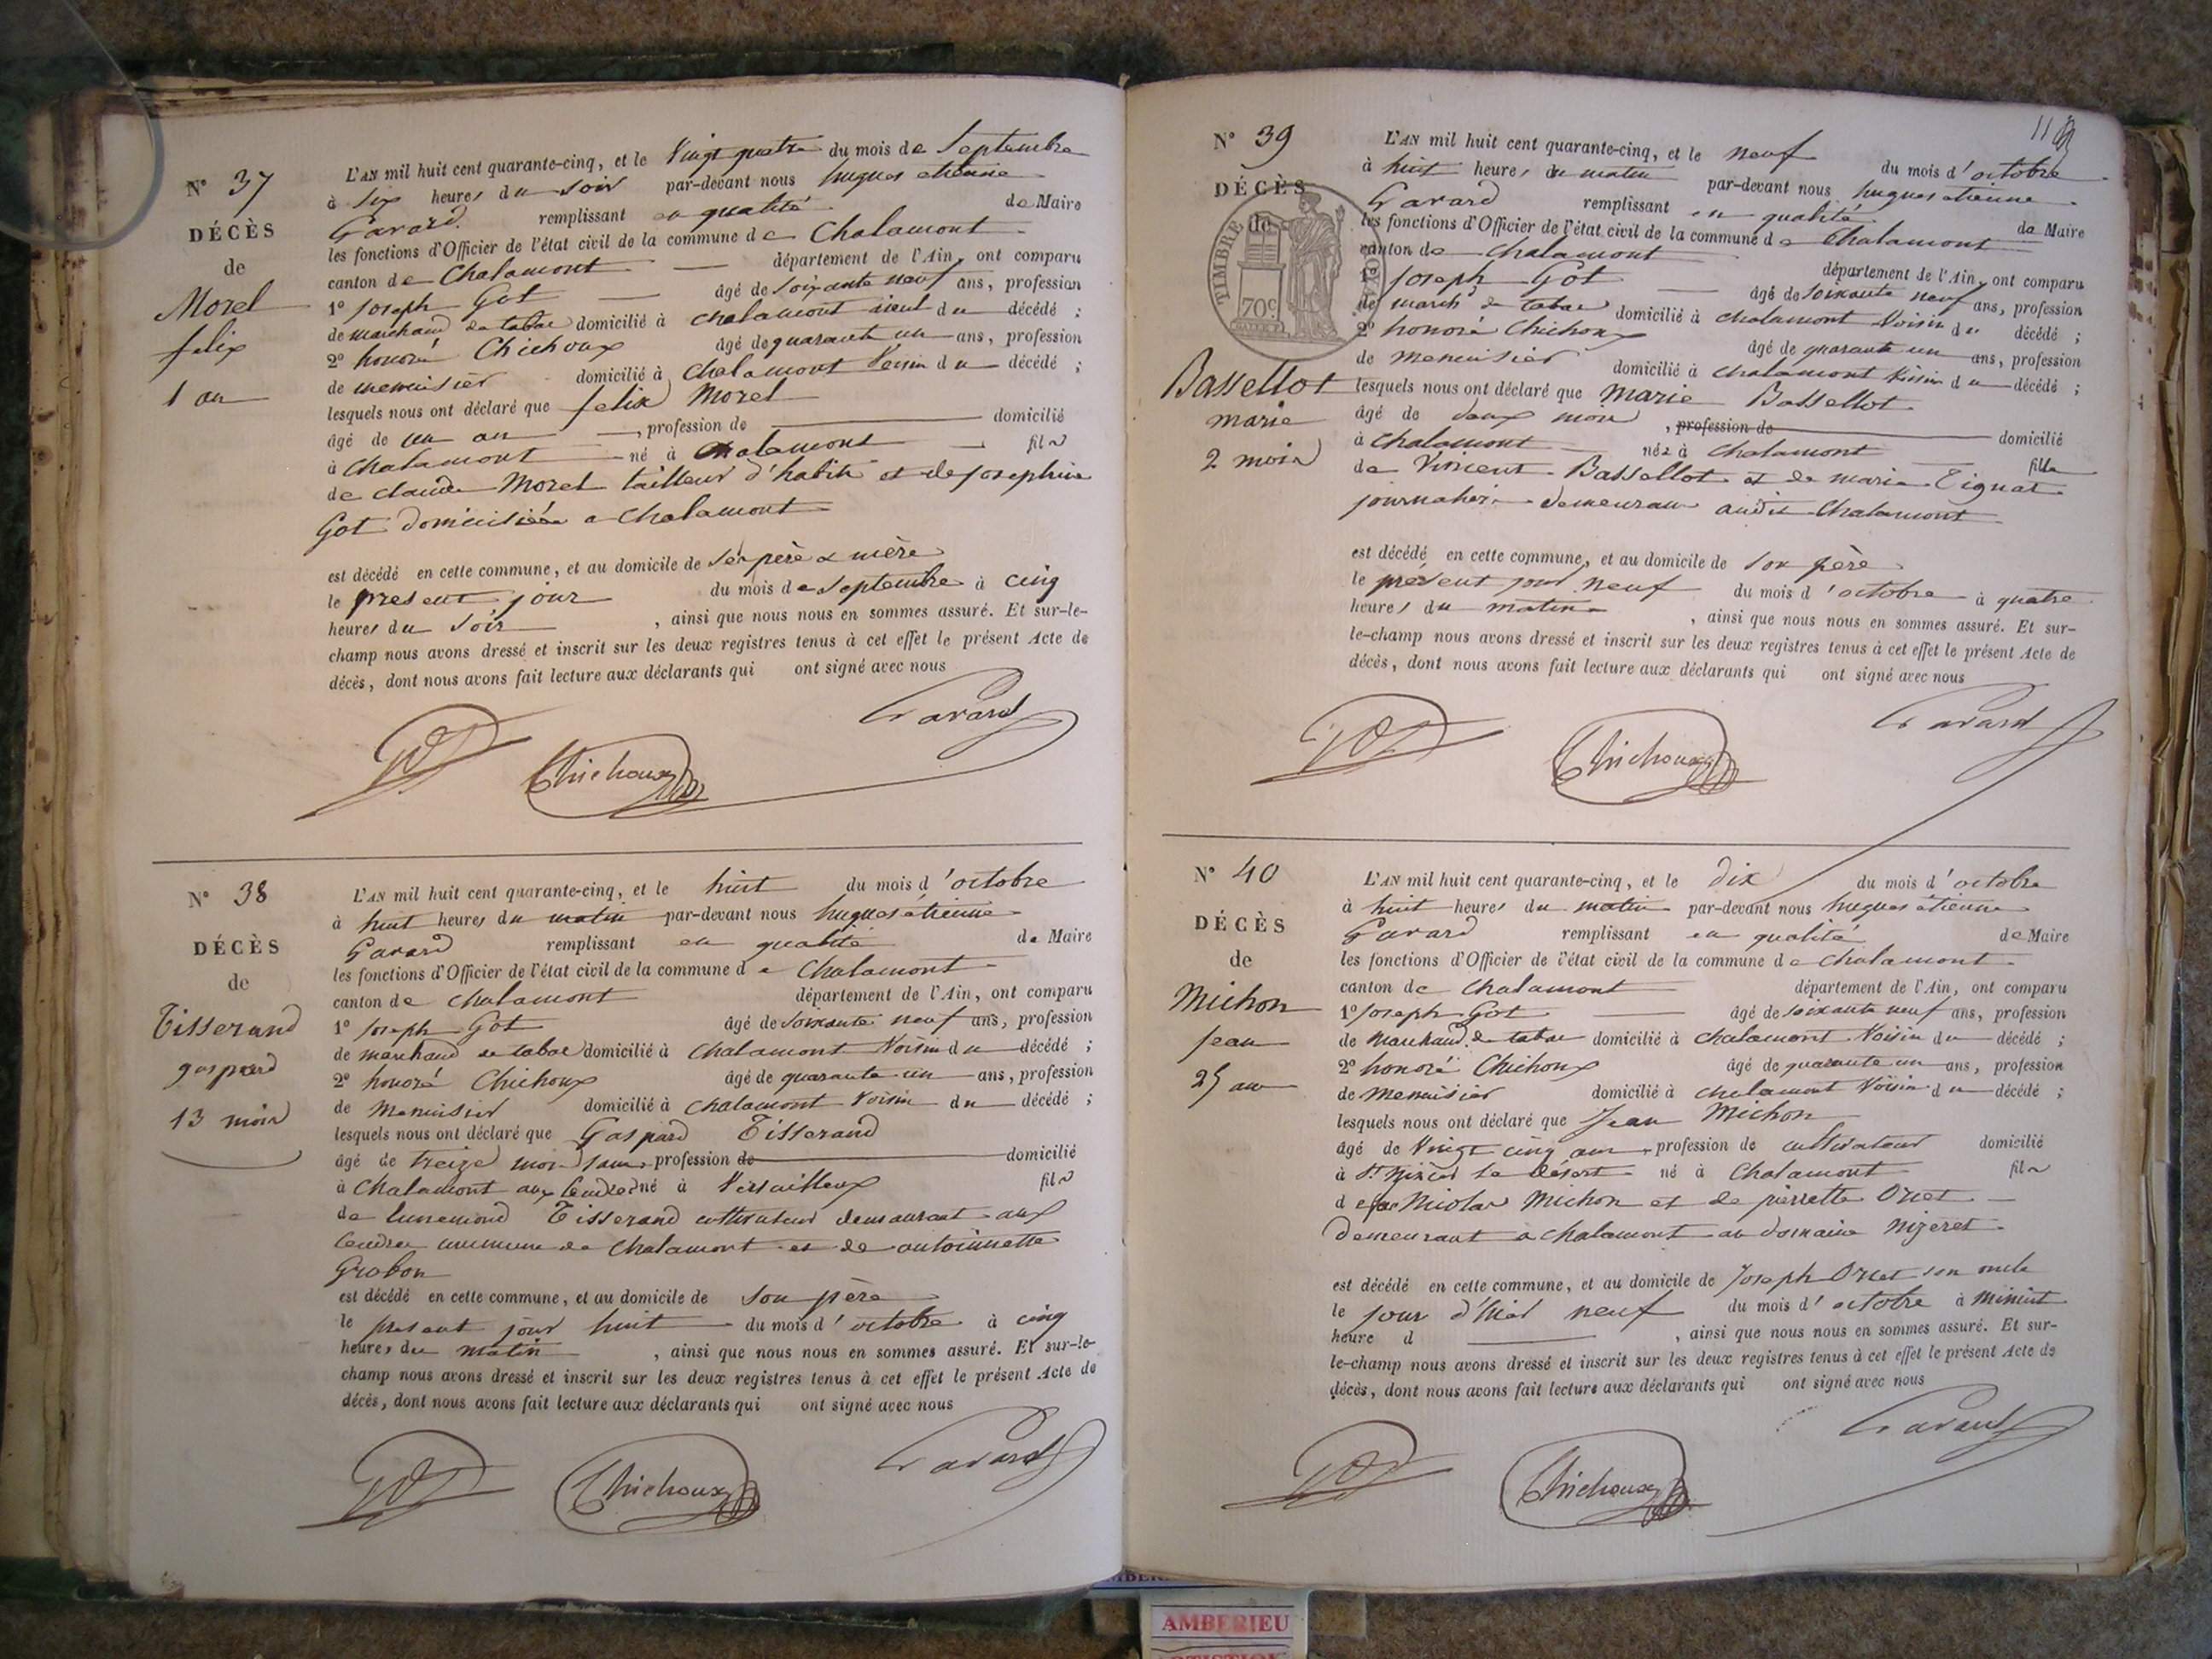 N° 37
DÉCÈS
de
Morel
felix
1 an
L'AN mil huit cent quarante-cinq, et le Vingt quatre du mois de Septembre
à Six heures du soir par-devant nous hugues etienne
Gavard remplissant en qualité de Maire
les fonctions d'Officier de l'état civil de la commune de Chalamont
canton de Chalamont département de l'Ain, ont comparu
1° Joseph Got âgé de Soixante neuf ans, profession
de marchand de tabac domicilié à chalamont aieul du décédé ;
2° honoré Chichoux âgé de quarante un ans, profession
de menuisier domicilié à Chalamont Voisin du décédé ;
lesquels nous ont déclaré que felix Morel
âgé de un an , profession de domicilié
à Chalamont né à Chalamont fils
de claude Morel tailleur d'habits et de josephine
Got domiciliés a Chalamont
est décédé en cette commune, et au domicile de Ses père & mère
le present jour du mois de Septembre à cinq
heures du Soir , ainsi que nous nous en sommes assuré. Et sur-le-
champ nous avons dressé et inscrit sur les deux registres tenus à cet effet le présent Acte de
décès, dont nous avons fait lecture aux déclarants qui ont signé avec nous
Gavard
Got
Chichoux
N° 38
DÉCÈS
de
Tisserand
gaspard
13 mois
L'AN mil huit cent quarante-cinq, et le huit du mois d'octobre
à huit heures du matin par-devant nous hugues étienne
Gavard remplissant en qualité de Maire
les fonctions d'Officier de l'état civil de la commune de Chalamont
canton de Chalamont département de l'Ain, ont comparu
1° Joseph Got âgé de soixante neuf ans, profession
de marchand de tabac domicilié à Chalamont Voisin du décédé ;
2° honoré Chichoux âgé de quarante un ans, profession
de Menuisier domicilié à Chalamont Voisin du décédé ;
lesquels nous ont déclaré que Gaspard Tisserand
âgé de treize mois sans profession de domicilié
à Chalamont aux né à Versailleux fils
de Tisserand cultivateur demeurant aux
commune de Chalamont et de antoinette
Grobon
est décédé en cette commune, et au domicile de Son père
le présent jour huit du mois d'octobre à cinq
heures du matin , ainsi que nous nous en sommes assuré. Et sur-le-
champ nous avons dressé et inscrit sur les deux registres tenus à cet effet le présent Acte de
décès, dont nous avons fait lecture aux déclarants qui ont signé avec nous
Gavard
Got
Chichoux
11
N° 39
DÉCÈS
de
TIMBRE
70c
Bassellot
marie
2 mois
L'AN mil huit cent quarante-cinq, et le neuf du mois d'octobre
à huit heures du matin par-devant nous hugues etienne
Gavard remplissant en qualité de Maire
les fonctions d'Officier de l'état civil de la commune de Chalamont
canton de Chalamont département de l'Ain, ont comparu
1° Joseph Got âgé de soixante neuf ans, profession
de march de tabac domicilié à Chalamont Voisin du décédé ;
2° honoré Chichoux âgé de quarante un ans, profession
de menuisier domicilié à Chalamont Voisin du décédé ;
lesquels nous ont déclaré que Marie Bassellot
âgé de deux mois , profession de domicilié
à Chalamont née à Chalamont fille
de Vincent Bassellot et de marie Tignat
journaliers demeurant audit Chalamont
est décédé en cette commune, et au domicile de Son père
le présent jour neuf du mois d'octobre à quatre
heures du matin , ainsi que nous nous en sommes assuré. Et sur-
le-champ nous avons dressé et inscrit sur les deux registres tenus à cet effet le présent Acte de
décès, dont nous avons fait lecture aux déclarants qui ont signé avec nous
Gavard
Got
Chichoux
N° 40
DÉCÈS
de
Michon
jean
25 ans
L'AN mil huit cent quarante-cinq, et le dix du mois d'octobre
à huit heures du matin par-devant nous hugues étienne
Gavard remplissant en qualité de Maire
les fonctions d'Officier de l'état civil de la commune de Chalamont
canton de Chalamont département de l'Ain, ont comparu
1° Joseph Got âgé de soixante neuf ans, profession
de Marchand de tabac domicilié à Chalamont Voisin du décédé ;
2° honoré Chichoux âgé de quarante un ans, profession
de Menuisier domicilié à Chalamont Voisin du décédé ;
lesquels nous ont déclaré que Jean Michon
âgé de Vingt cinq ans, profession de cultivateur domicilié
à St Nizier le Désert né à Chalamont fils
de Nicolas Michon et de pierrette Orset
Demeurant a Chalamont au domaine Nizeret
est décédé en cette commune, et au domicile de Joseph Orset son oncle
le jour d'hier neuf du mois d'octobre à Minuit
heure d , ainsi que nous nous en sommes assuré. Et sur-
le-champ nous avons dressé et inscrit sur les deux registres tenus à cet effet le présent Acte de
décès, dont nous avons fait lecture aux déclarants qui ont signé avec nous
Gavard
Got
Chichoux
AMBERIEU